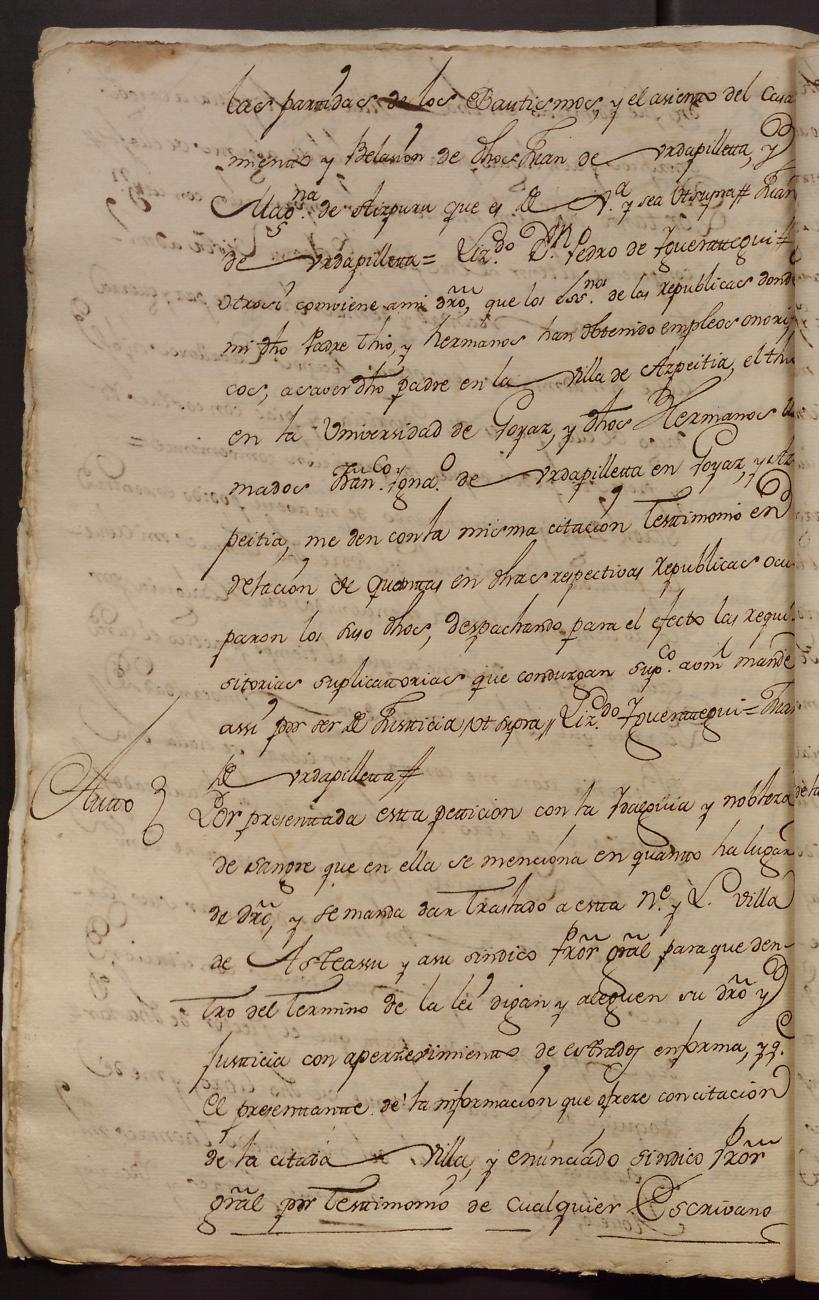 las partidas de los Bautismos, y el asiento del Casa
miento y Belasion de dhos Juan de Urdapilleta, y
Mag.na de Aizpuru que es J.a y sea Ut supra# Juan
de Urdapilleta= Liz.do D.n Pedro de Yguerategui#
Otrosi conviene ami dro, que los Ess.nos de las republicas donde
mi dho Padre thio, y hermanos han obtenido empleos onori
cos, asaver dho padre en la Villa de Azpeitia, el thio
en la Universidad de Goyaz, y dhos Hermanos lla
mados Fran.co y Igna.o de Urdapilleta en Goyaz, y Az
peitia, me den con la misma citacion Testimonio en
delacion de quantas en dhas respectivas Republicas ocu
paron los suso dhos, despachando para el efecto las requi
sitorias suplicatorias que conduzgan sup.co a vm mande
assi por ser de Justicia, Ut supra,, Liz.do Yguerategui = Juan
de Urdapilleta#
Autto } Por presenttada estta petticion con la Ydalguia y nobleza de la
de sangre que en ella se menciona en quantto ha lugar
de dro, y se manda dar Traslado a estta N.e y L. Villa
de Asteassu y a su sindico Pror gral para que den-
tro del Termino de la lei digan y aleguen su dro y
justicia con apercevimiento de estrados en forma, y q.
el presenttante de la informacion que ofreze con citacion
de la citada Villa, y enunciado sindico Pror
gral por Testtimonio de Cualquier Escrivano